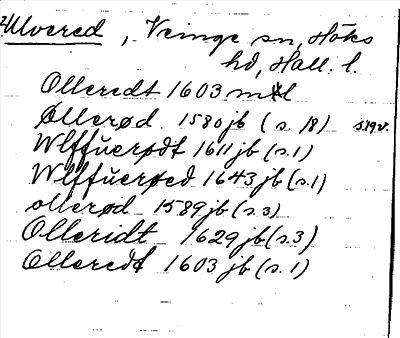 Ulvered, Veinge sn, Höks
hd, Hall. l.
Olleredt 1603 mtl
Øllerød 1580 jb (s. 18) s. 19 v.
Wlffuerødt 1611 jb (s. 1)
Wlffuerøed 1643 jb (s. 1)
ollerød 1589 jb (s. 3)
Olleridt 1629 jb (s. 3)
Olleredt 1603 jb (s. 1)